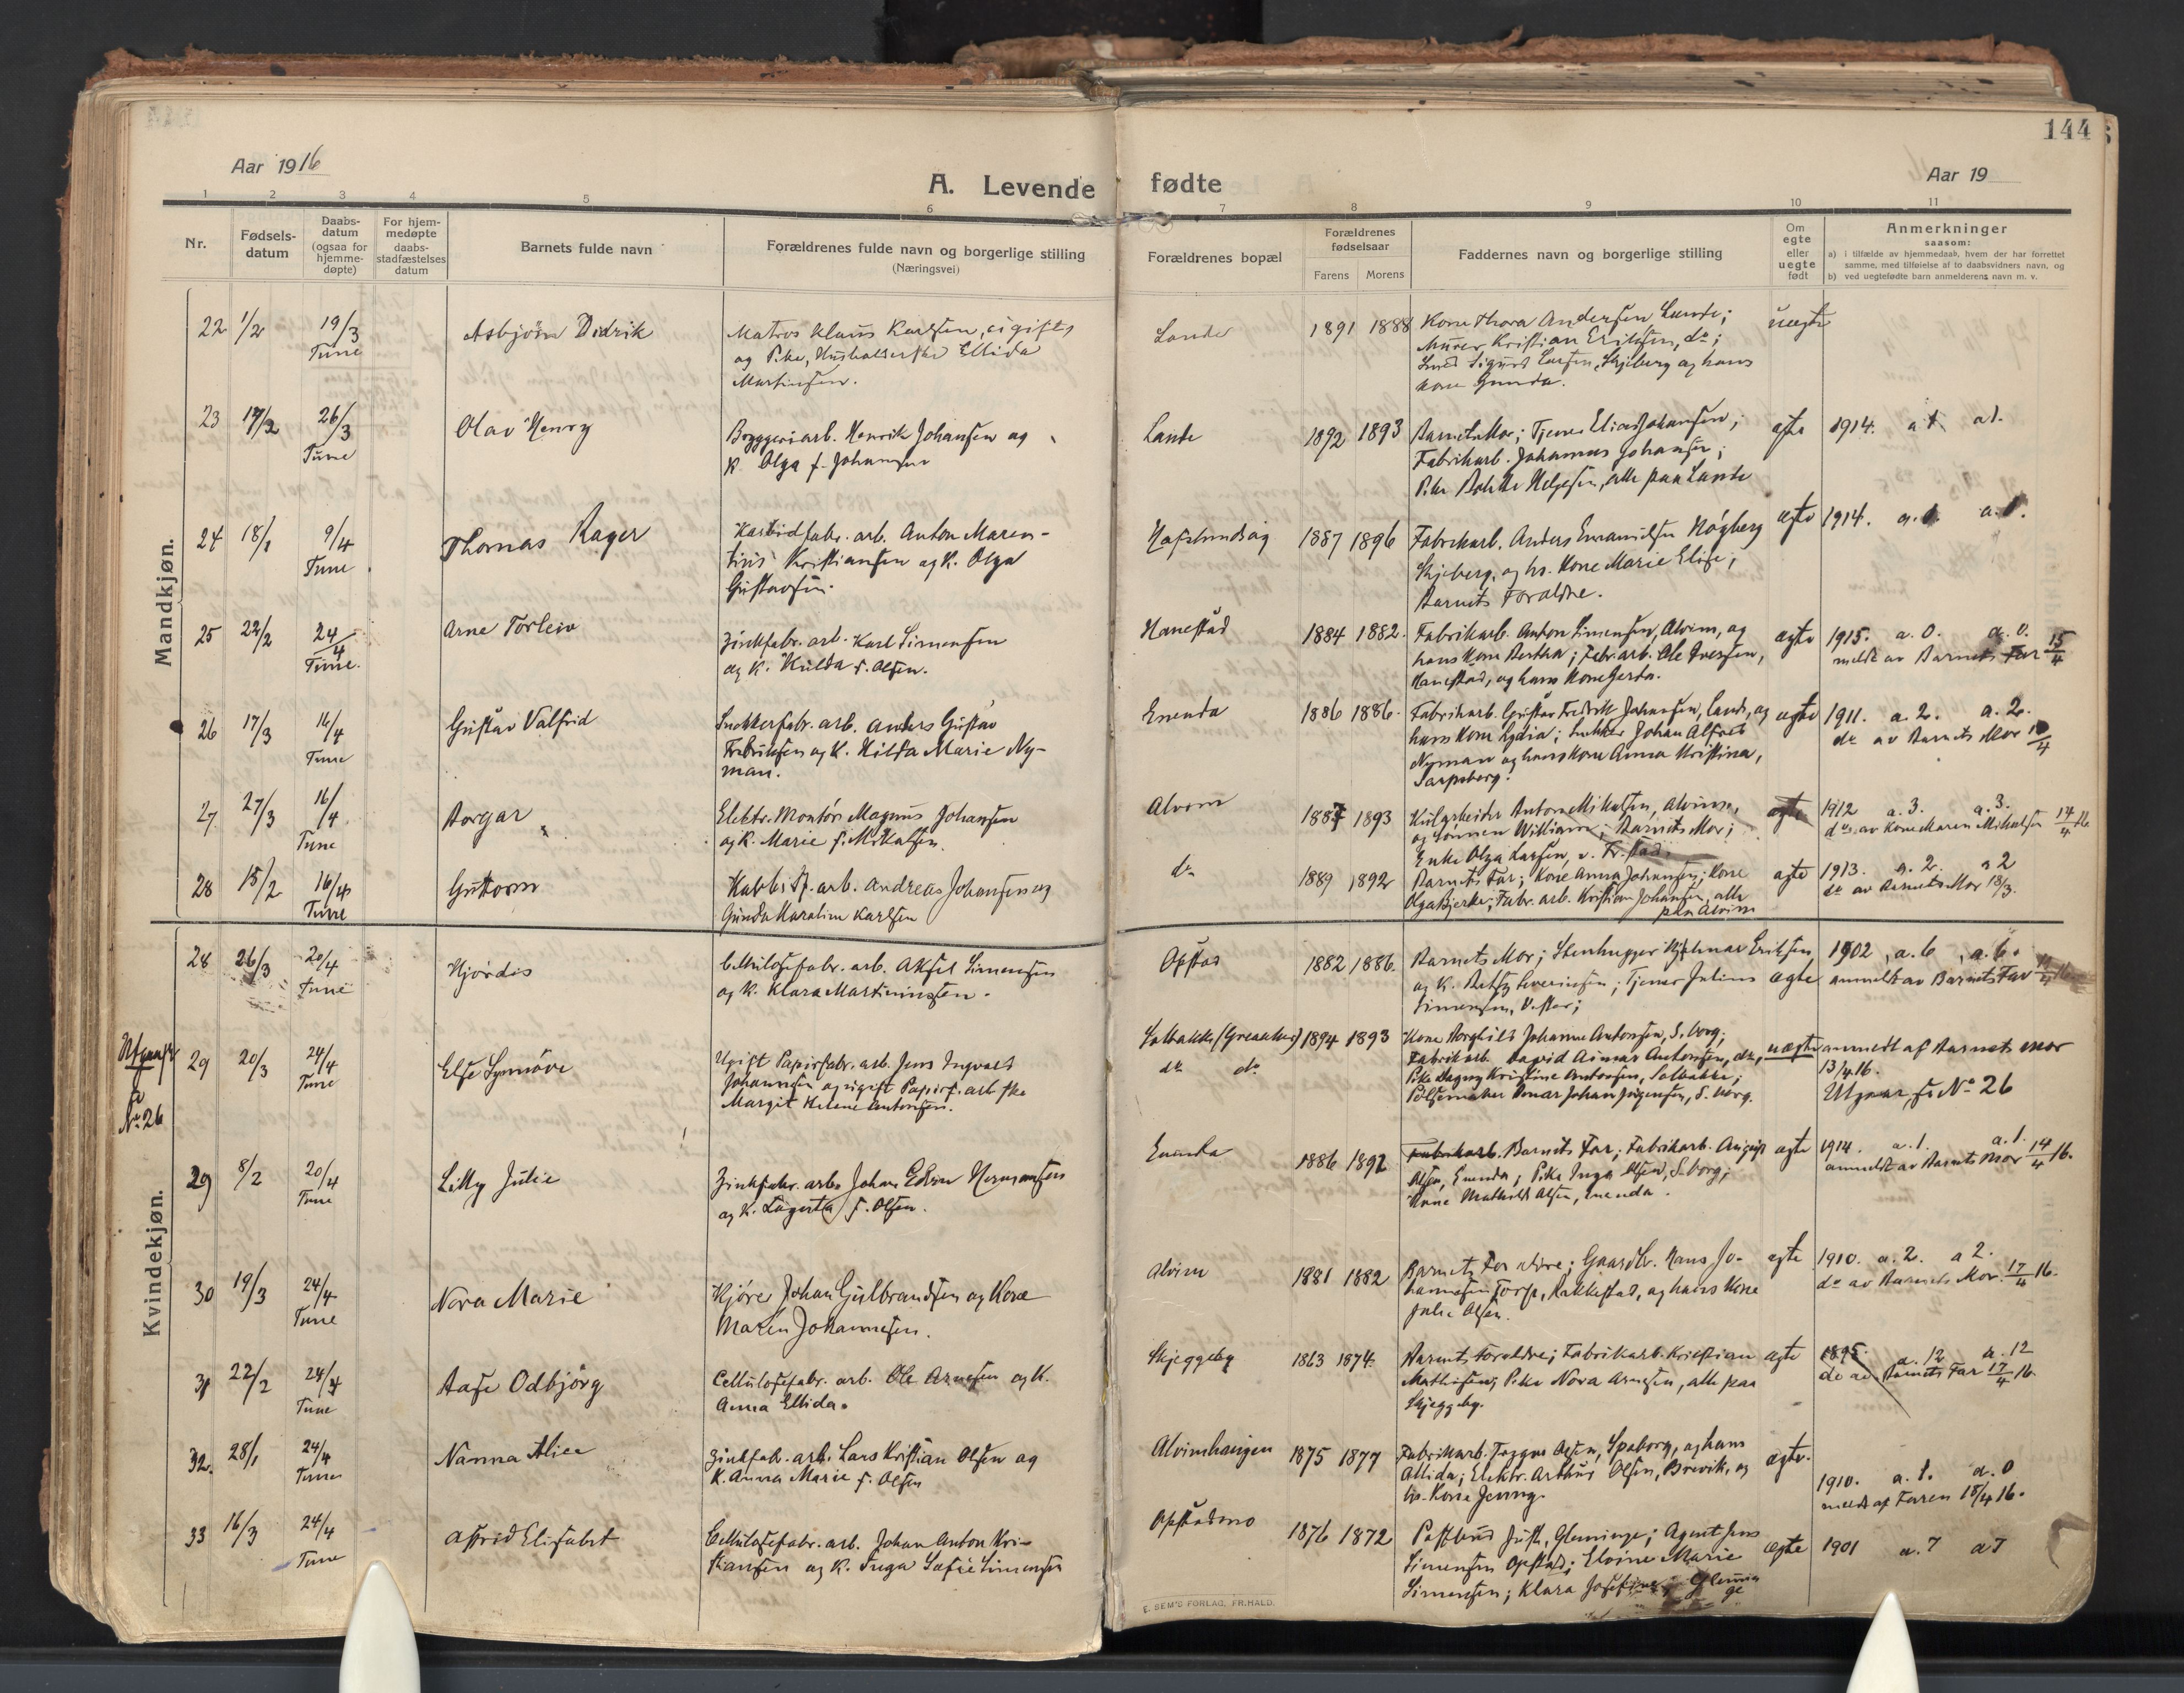 144
Aar 1916
A. Levende fødte
Aar 19
1 2 3 4 5 6 7 8 9 10 11
Nr.
Fødsels-
datum
Daabs-
datum
(ogsaa for
hjemme-
døpte)
For hjem-
medøpte
daabs-
stadfæstelses
datum
Barnets fulde navn
Forældrenes fulde navn og borgerlige stilling
(Næringsvei)
Forældrenes bopæl
Forældrenes
fødselsaar
Farens
Morens
Faddernes navn og borgerlige stilling
Om
egte
eller
uegte
født
Anmerkninger
saasom:
a) i tilfælde av hjemmedaab, hvem der har forrettet
samme, med tilføielse af to daabsvidners navn, og
b) ved uegtefødte barn anmelderens navn m. v.
Mandkjøn.
22 1/2 19/3
Tune
Asbjørn Didrik
Matros Klaus Karlsen, ugift,
og Pike, Ellida
Martinsen.
Lande
1891 1888
Kone Thora Andersen Lande;
Murer Kristian Eriksen, do;
Smed Sigurd Larsen, Skjeberg og hans
kone Gunda.
uegte
23 17/2 26/3
Tune
Olav Henry
Bryggeriarb. Henrik Johansen og
K. Olga f. Johansen
Lande
1892 1893
Barnets Mor; Tjener Elias Johansen;
Fabrikarb. Johannes Johansen;
Pike Helgesen, alle paa Lande
egte
1914. a1 a1.
24 18/1 9/4
Tune
Thomas Rager
Karbidfabr. arb. Anton Maren-
tius Kristiansen og K. Olga
Gustavsen.
Hafslundsøg
1887 1896
Fabrikarb. Anders Emanuelsen Høgberg
Skjeberg, og hs. Kone Marie Elise;
Barnets Forældre.
egte
1914. a.1. a.1.
25 22/2 24/4
Tune.
Arne Torleiv
Zinkfabr. arb. Karl Simensen
og K. Hulda f. Olsen.
Hanestad
1884 1882.
Fabrikarb. Anton Simensen, Alvim, og
hans Kone Bertha; Fabr. arb. Ole Iversen,
Hanestad, og hans Kone Gerda.
egte
1915. a.0. a.0.
meldt av Barnets Far 15/4
26 17/3 16/4
Tune
Gustav Valfrid
Snekkerfabr. arb. Anders Gustav
Fredriksen og K. Hilda Marie Ny-
man.
Enenda
1886 1886.
Fabrikarb. Gustav Fredrik Johansen, Lande, og
hans Kone Lydia; Snekker Johan Alfred
Nyman og hans Kone Anna Kristina,
Sarpsborg.
egte
1911. a.2. a.2.
do av Barnets Mor
27 27/3 16/4
Tune
Borgar
Elektr. Montør Magnus Johansen
og K. Marie f. Mikalsen.
Alvim
1887 1893
Kularbeider Anton Mikalsen, Alvim,
og Sønnen William; Barnets Mor;
Enke Olga Larsen, v. Fr.stad.
egte
1912 a.3. a.3.
do av Kone Maren Mikalsen 14/4 16
28 15/2 16/4
Tune
Guttorm
arb. Andreas Johansen og
Gunda Karoline Karlsen
do
1889 1892
Barnets Far; Kone Anna Johansen; Kone
Olga Bjerke; Fabr. arb. Kristian Johansen, alle
paa Alvim
egte
1913. a.2. a2
do av Barnets Mor 18/3.
Kvindekjøn.
28 26/3 20/4
Tune
Hjørdis
Cellulosefabr. arb. Aksel Simensen
og K. Klara Martinussen.
Opstad
1882 1886.
Barnets Mor; Stenhugger Hjalmar Eriksen,
og K. Betzy Severinsen; Tjener Julius
Simensen,
egte
1902, a.6, a.6.
anmeldt av Barnets Far
Utgaar
se
No 26
29 20/3 24/4
Tune
Else Synnøve
Ugift Papirfabr. arb. Jens Ingvald
Johannesen og ugift Papirf. arb.ske
Margit Helene Antonsen.
Solbakke (Greaaker)
do do.
1894 1893
Kone Borghild Johanne Antonsen, S.borg;
Fabrikarb. David Aimar Antonsen, do,
Pike Dagny Kristine Antonsen, Solbakke;
Pølsemaker Johan Jørgensen, S. borg.
uegte
anmeldt af Barnets mor
13/4 16.
Utgaar, se No 26
29 8/2 20/4
Tune
Lilly Julie
Zinkfabr. arb. Johan Edvin Hermansen
og K. Lagerta f. Olsen.
Enenda
1886 1892
Fabrikarb. Barnets Far; Fabrikarb. August
Olsen, Enenda; Pike Inga Olsen, S.borg;
Kone Mathilde Olsen, Enenda.
egte
1914. a.1. a.1.
anmeldt av Barnets Mor 14/4 16.
30 19/3 24/4
Tune
Nora Marie
Kjører Johan Gulbrandsen og Kone
Maren Johannesen.
Alvim
1881 1882
Barnets Forældre; Gaardbr. Hans Jo-
hannesen Torp, Rakkestad, og hans Kone
Julie Olsen.
egte
1910. a.2. a2.
do av Barnets Mor. 17/4 16.
31 22/2 24/4
Tune
Aase Odbjørg
Cellulosefabr. arb. Ole Arnesen og K.
Anna Ellida.
Skjeggeby
1863 1874.
Barnets Forældre; Fabrikarb. Kristian
Mathisen; Pike Nora Arnesen, alle paa
Skjeggeby.
egte
1895. a.12 a.12
do av Barnets Far 17/4 16.
32. 28/1 24/4
Tune
Nanna Alice
Zinkfabr. arb. Lars Kristian Olsen og
K. Anna Marie f. Olsen
Alvimhaugen
1875 1877
Fabrikarb. Trygve Olsen, Spaborg, og hans
Allida; Elektr. Arthur Olsen, Brevik, og
hs. Kone Jenny.
egte.
1910. a.1. a.0
meldt af Faren 18/4 16.
33 16/3 24/4
Tune
Astrid Elisabet
Cellulosefabr. arb. Johan Anton Kri-
stiansen og K. Inga Sofie Simensen
Opstadmo
1876 1872
Postbud Glemminge; Agent Jens
Simensen Opstad; Elvine Marie
Simensen; Klara Josefine, Glemmin
ge
egte
1901 a.7 a7
E. SEM'S FORLAG, FR.HALD.